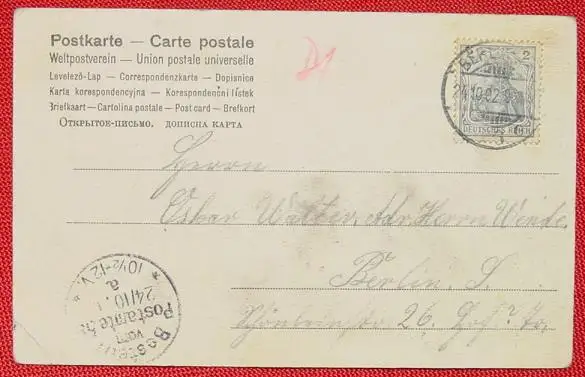 Postkarte — Carte postale
Weltpostverein — Union postale universelle
Levelező-Lap — Correspondenzkarte — Dopisnice
Karta korespondencyjna — Korespondenční lístek
Briefkaart — Cartolina postale — Post card — Brefkort
Открытое-письмо. дописна карта
2
24.10.02
DEUTSCHES REICH
Herrn
Oskar Walter, Adr. Herrn Wende
Berlin. S.
Schönleinstr 26. Hof
10½-12 V.
a.
24/10.
Postamte
vom
Bestellt